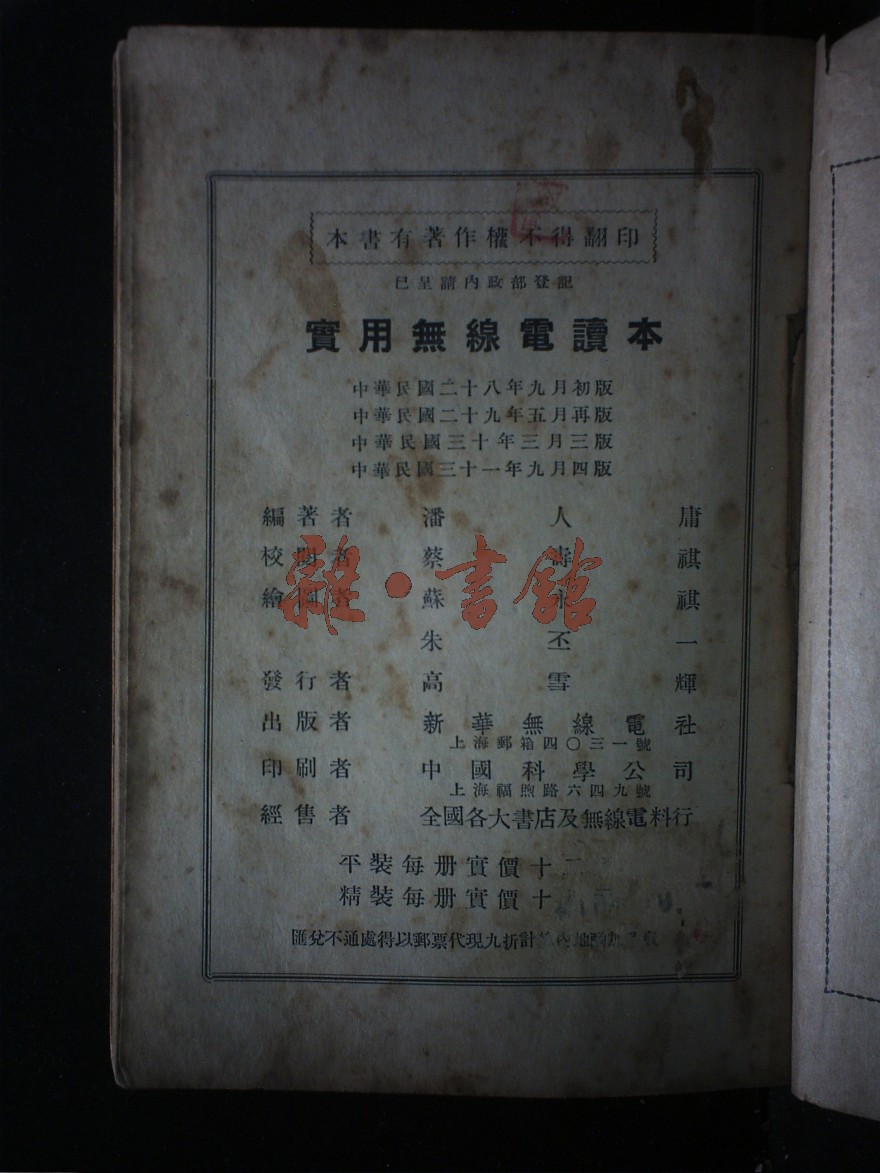 本書有著作權不得翻印
已呈請內政部登記
實用無線電讀本
中華民國二十八年九月初版
中華民國二十九年五月再版
中華民國三十年三月三版
中華民國三十一年九月四版
編著者 潘人庸
校閱者 蔡壽祺
繪圖者 蘇永祺
朱丕一
發行者 高雪輝
出版者 新華無線電社
上海郵箱四〇三一號
印刷者 中國科學公司
上海福煦路六四九號
經售者 全國各大書店及無線電料行
平裝每册實價十二
精裝每册實價十
匯兌不通處得以郵票代現九折計算
雜·書館